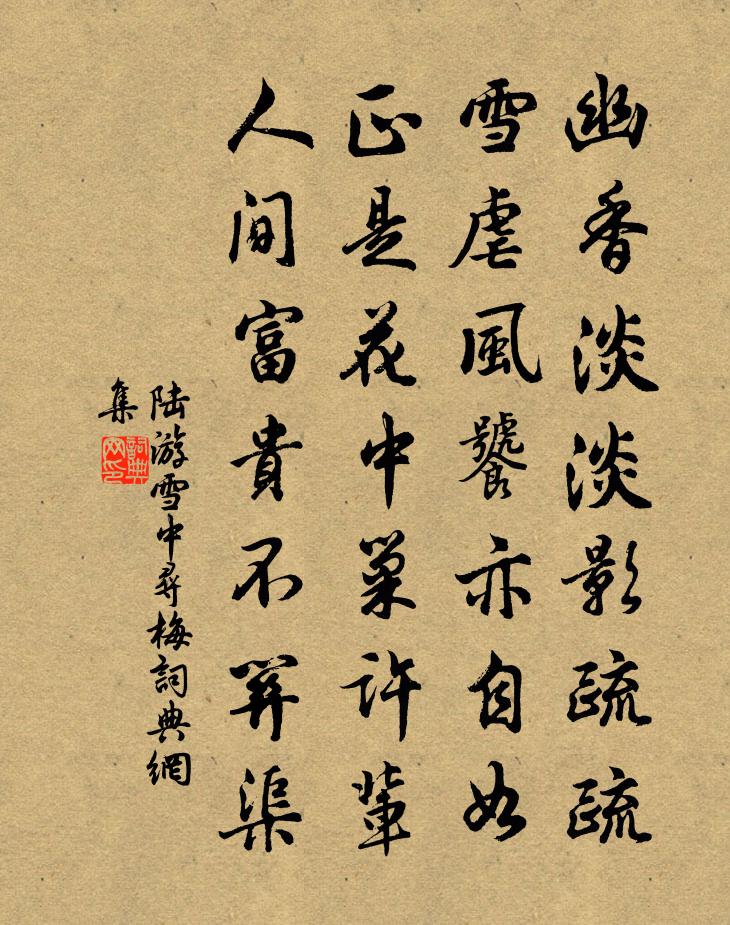 幽香淡淡影疏疏
雪虐風饕亦自如
正是花中巢許輩
人間富貴不關渠
陆游雪中尋梅詞典網
集
詞典
网印